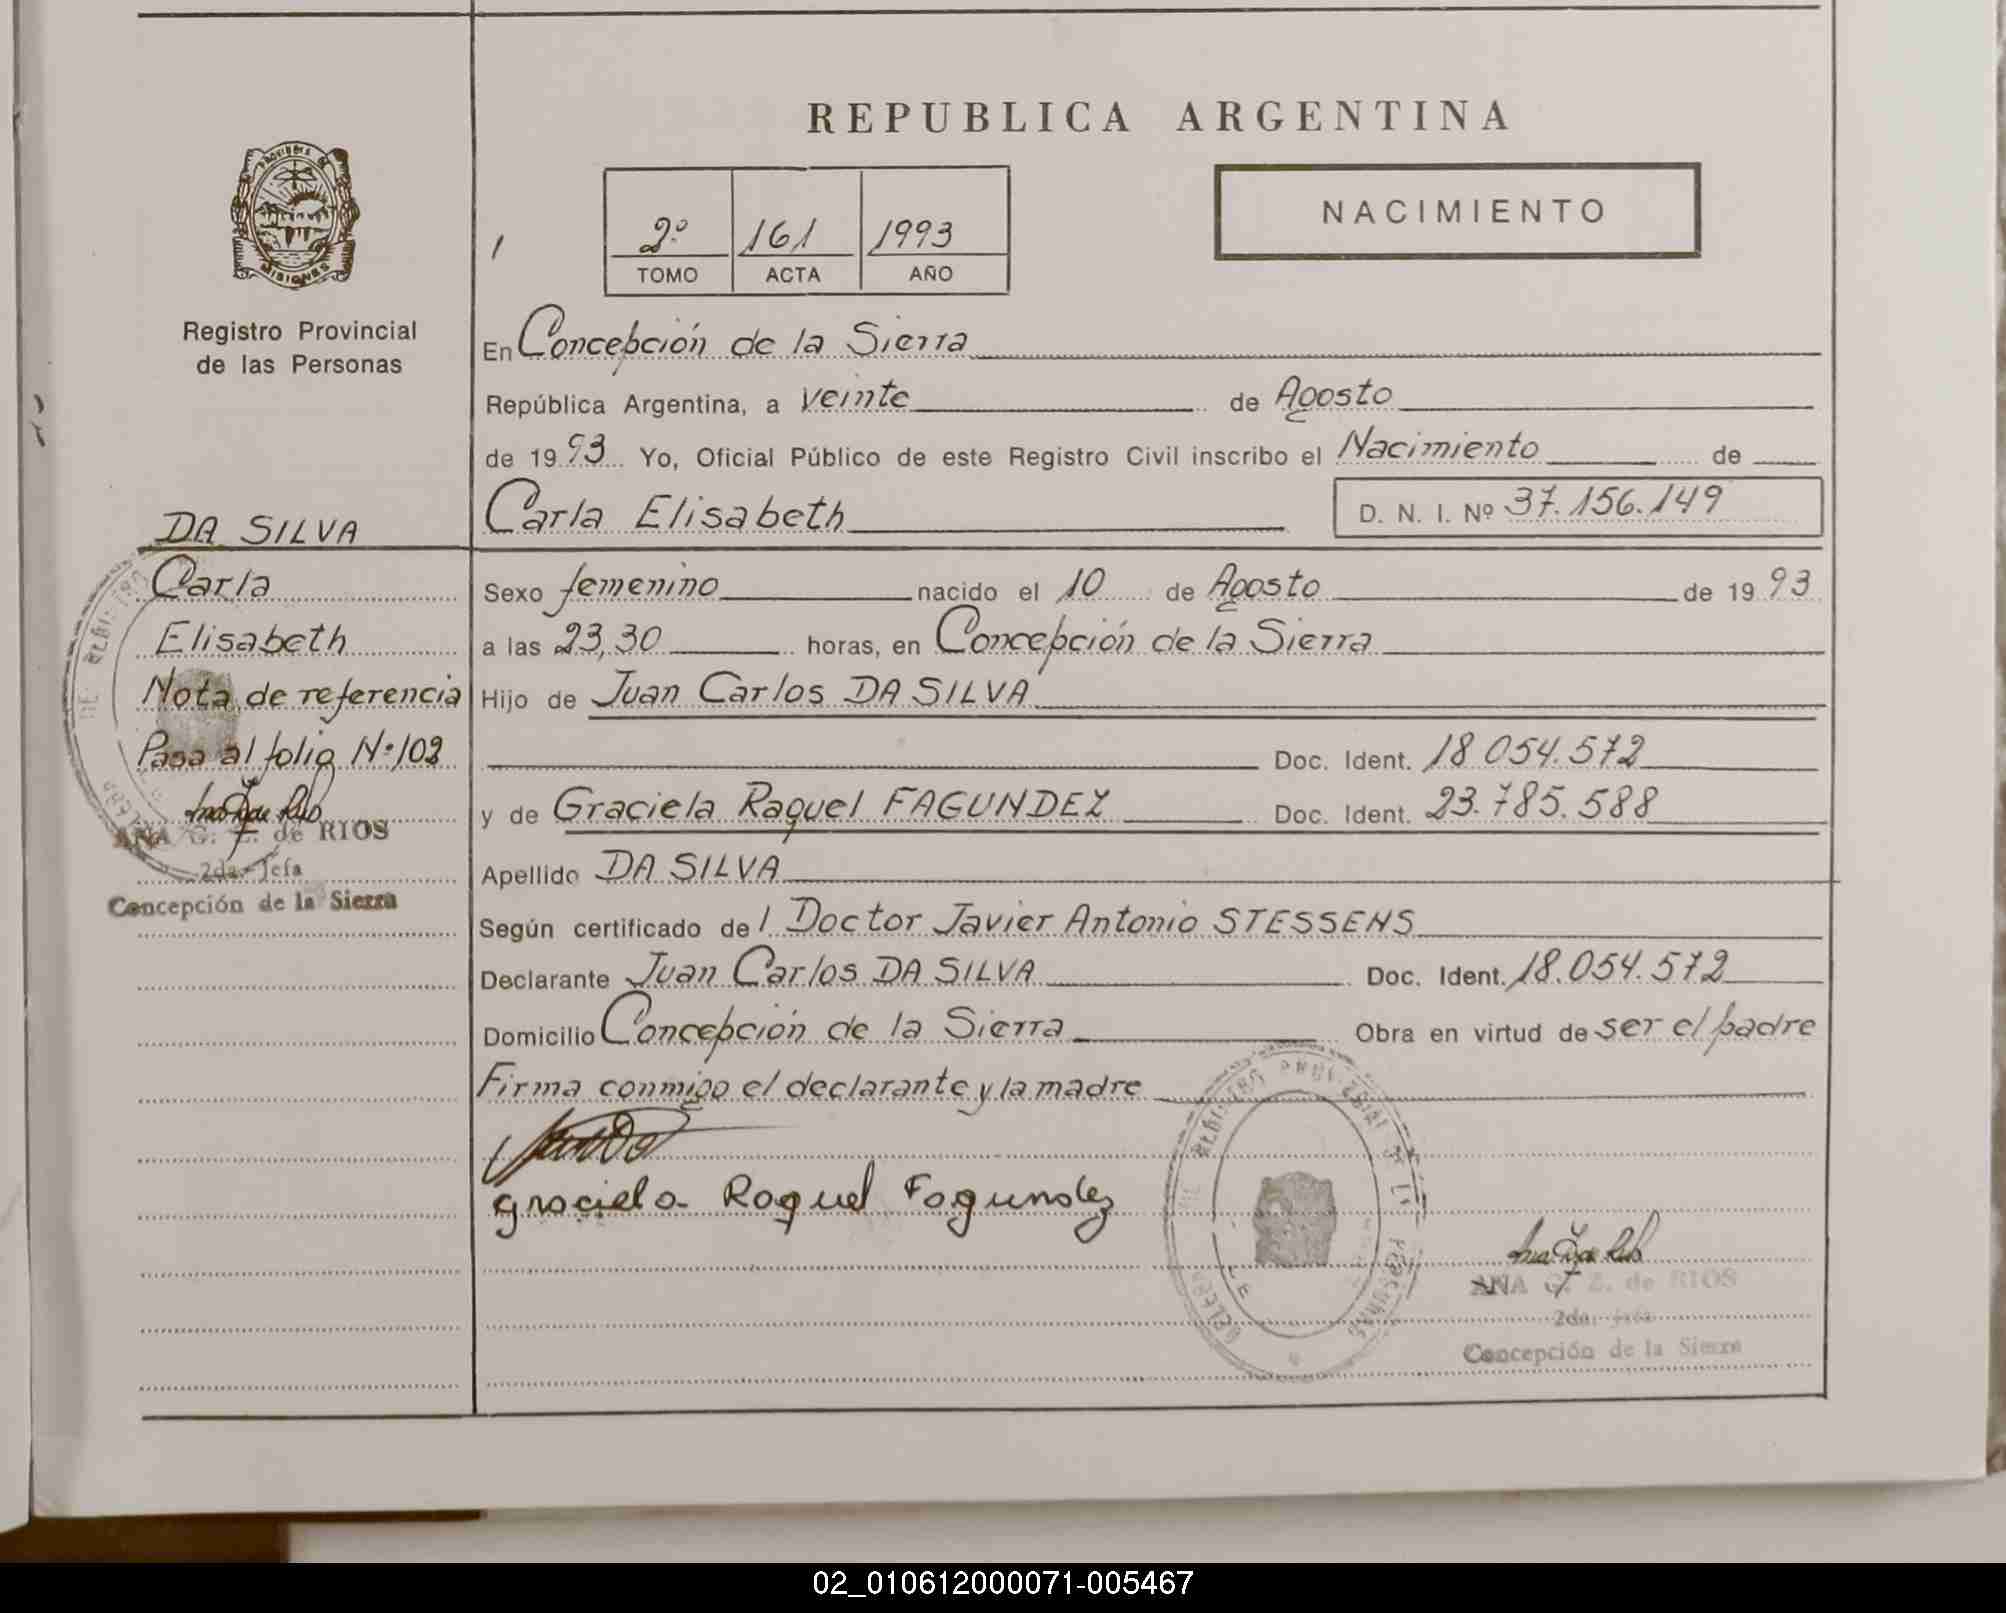 REPUBLICA ARGENTINA
PROVINCIA DE
MISIONES
Registro Provincial
de las Personas
2º 161 1993
TOMO ACTA AÑO
NACIMIENTO
En Concepción de la Sierra
República Argentina, a veinte de Agosto
de 1993 Yo, Oficial Público de este Registro Civil inscribo el Nacimiento de
Carla Elisabeth D. N. I. Nº 37.156.149
DA SILVA
Carla
Elisabeth
Nota de referencia
Pasa al folio Nº 102
ANA G. Z. de RIOS
2da. Jefa
Concepción de la Sierra
Sexo femenino nacido el 10 de Agosto de 1993
a las 23,30 horas, en Concepción de la Sierra
Hijo de Juan Carlos DA SILVA
Doc. Ident. 18.054.572
y de Graciela Raquel FAGUNDEZ Doc. Ident. 23.785.588
Apellido DA SILVA
Según certificado del Doctor Javier Antonio STESSENS
Declarante Juan Carlos DA SILVA Doc. Ident. 18.054.572
Domicilio Concepción de la Sierra Obra en virtud de ser el padre
Firma conmigo el declarante y la madre
Graciela Raquel Fagundez
ANA G. Z. de RIOS
2da. Jefa
Concepción de la Sierra
02_010612000071-005467